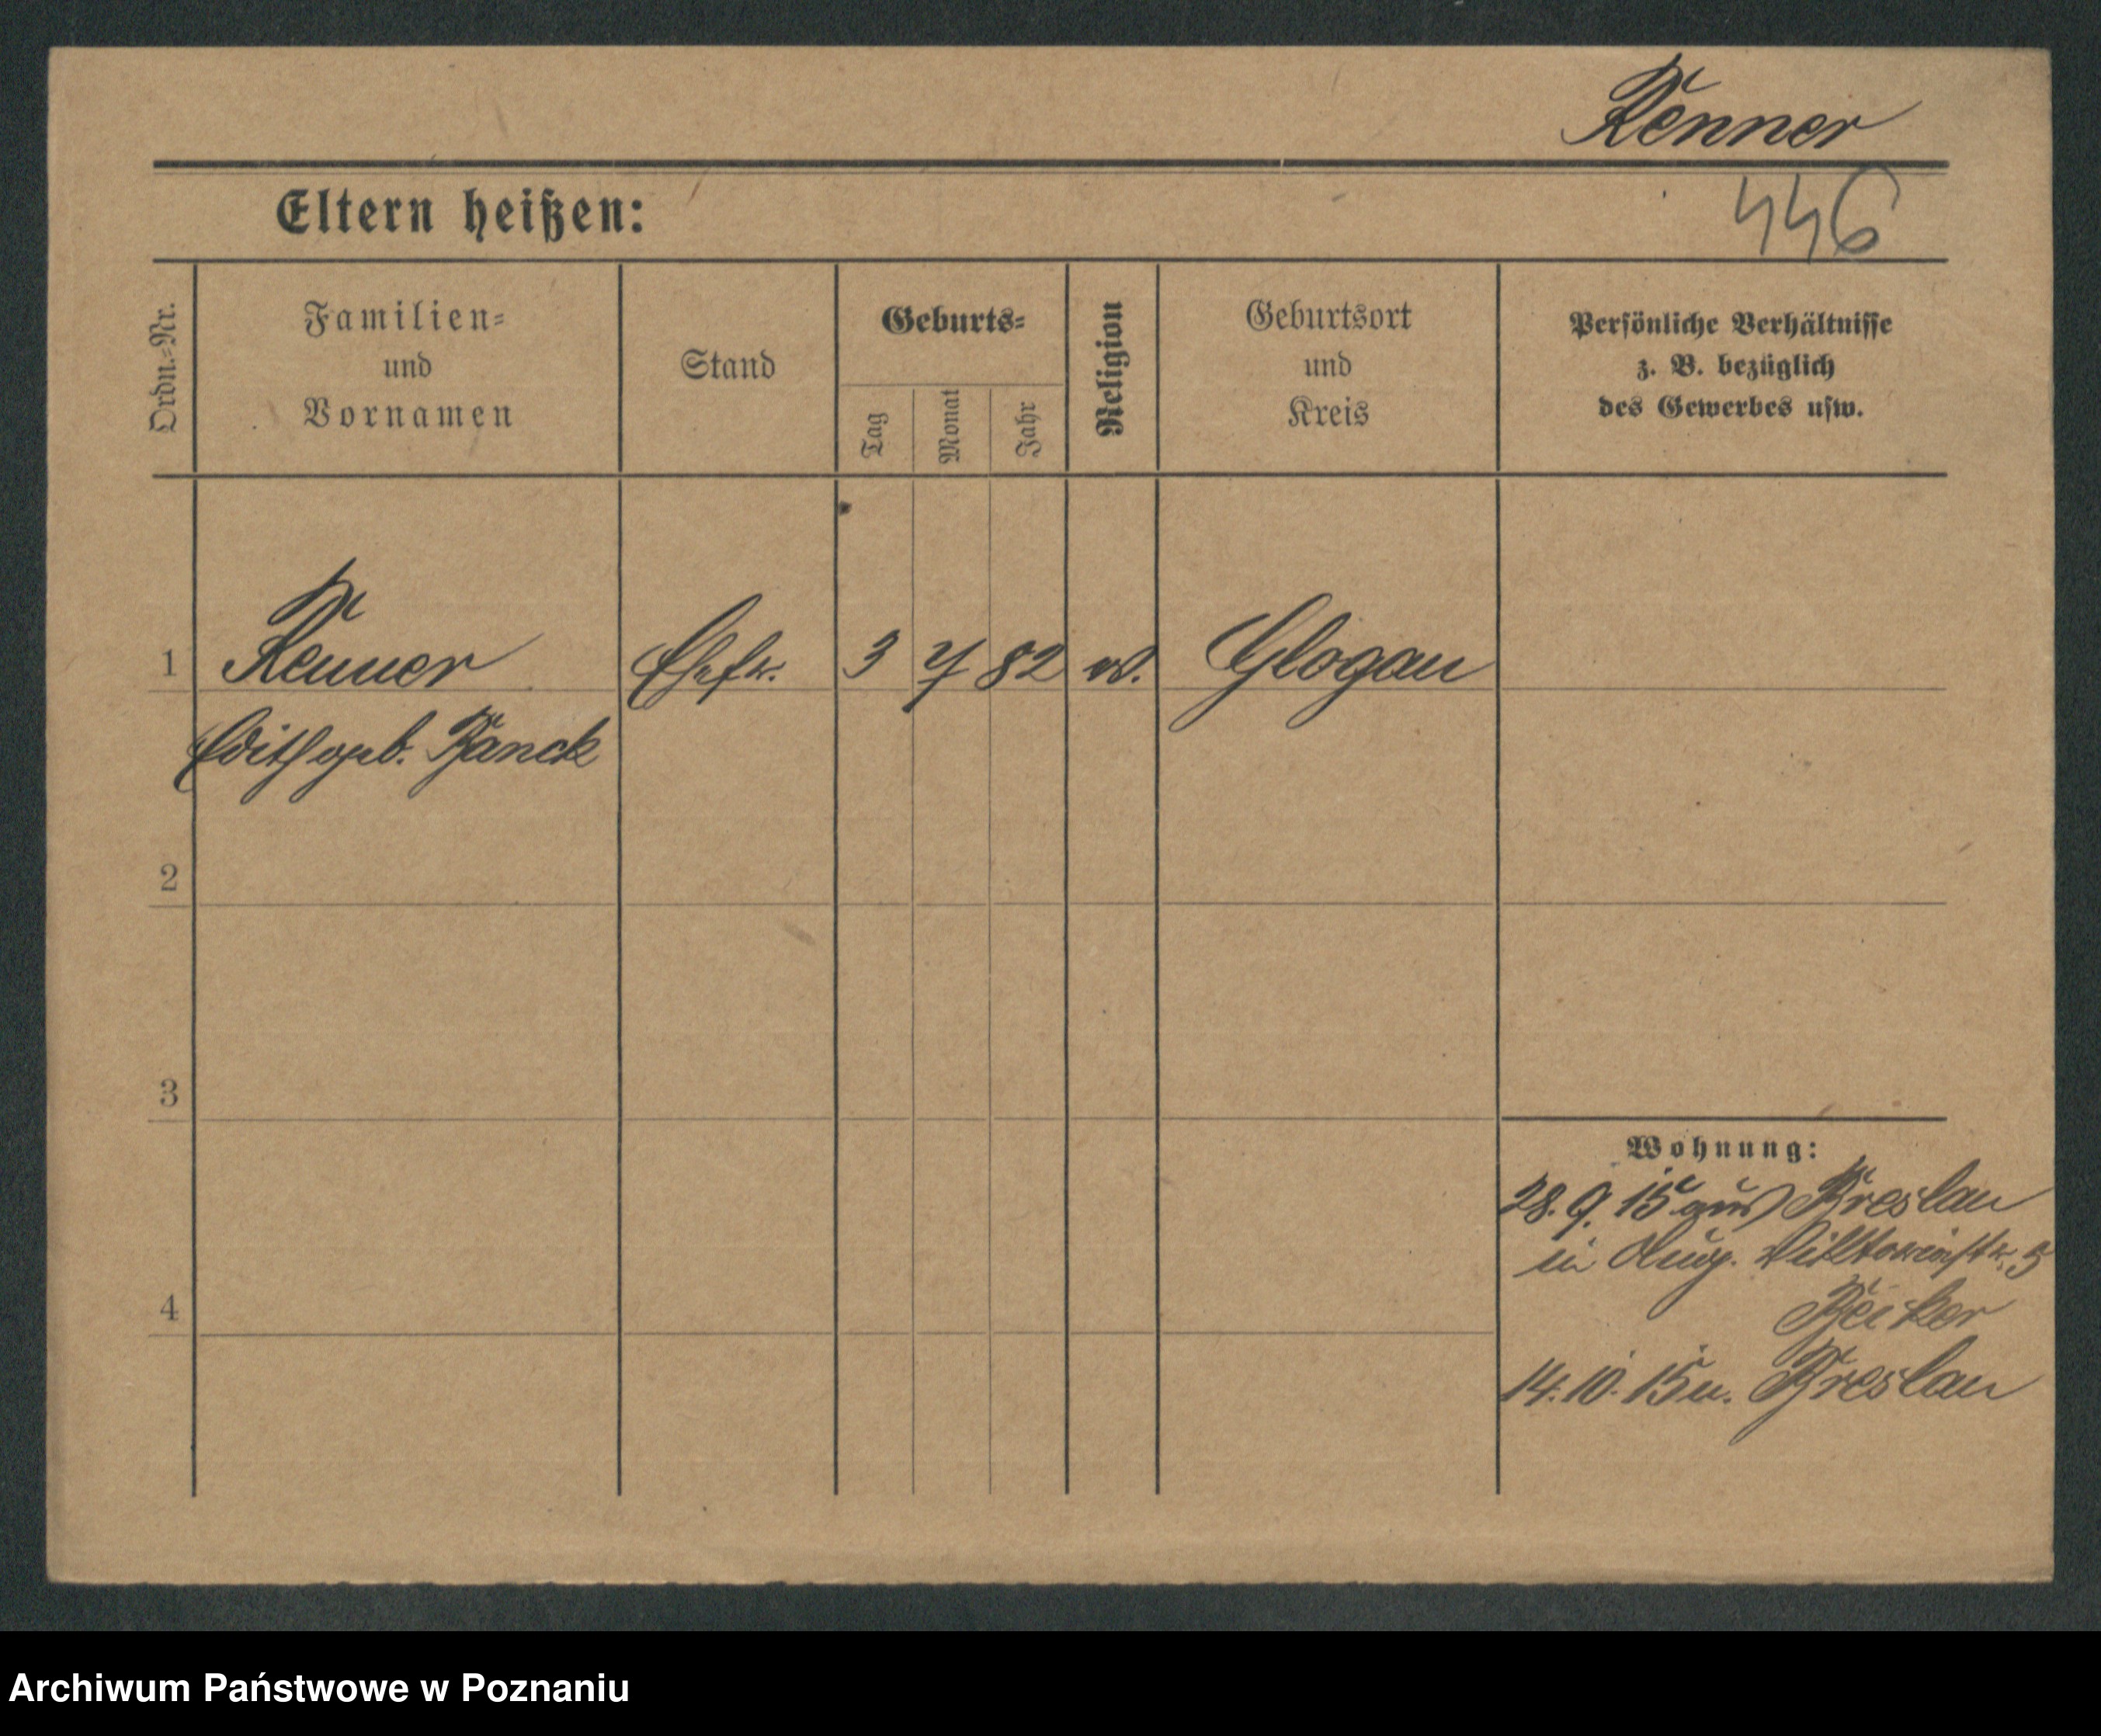 Renner
446
Eltern heißen:
Ordn.-Nr.
Familien-
und
Vornamen
Stand
Geburts-
Tag
Monat
Jahr
Religion
Geburtsort
und
Kreis
Persönliche Verhältnisse
z. B. bezüglich
des Gewerbes usw.
1 Renner Ehefr. 3 7 82 Glogau
Edith geb.
2
3
4
Wohnung:
28.9.15 aus Breslau
in Aug. Viktoriastr. 5
14.10.15 n. Breslau
Archiwum Państwowe w Poznaniu